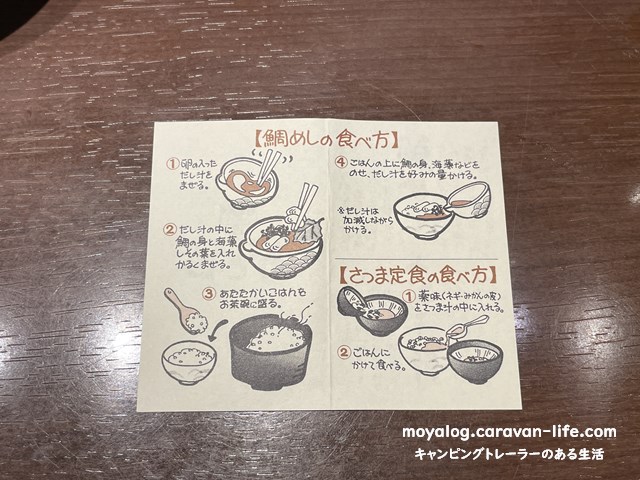 【鯛めしの食べ方】
① 卵の入った
だし汁を
まぜる。
② だし汁の中に
鯛の身と海藻
しその葉を入れ
かるくまぜる。
③ あたたかいごはんを
お茶碗に盛る。
④ ごはんの上に鯛の身、海藻などを
のせ、だし汁を好みの量かける。
※だし汁は
加減しながら
かける。
【さつま定食の食べ方】
① 薬味(ネギ・みかんの皮)
をさつま汁の中に入れる。
② ごはんに
かけて食べる。
moyalog.caravan-life.com
キャンピングトレーラーのある生活